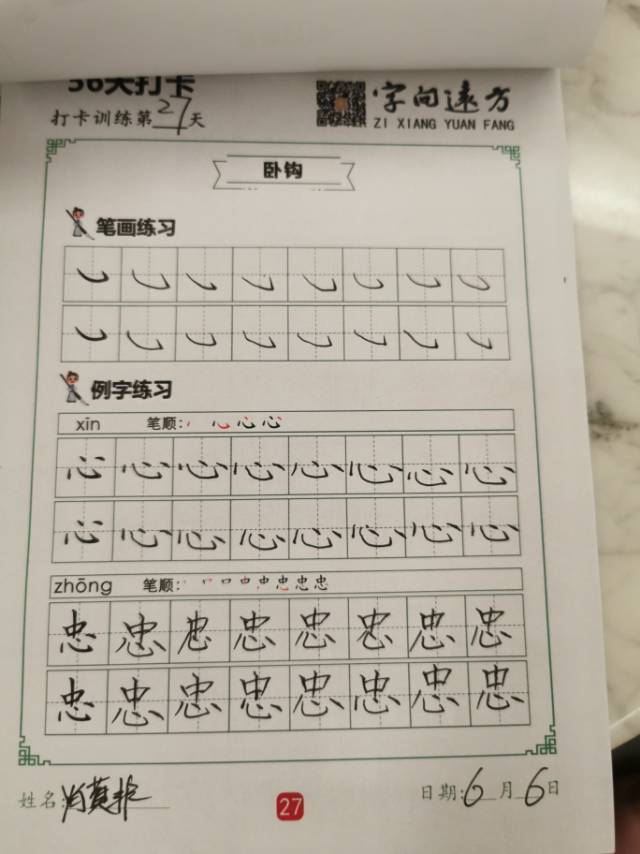 56天打卡
打卡训练第27天
字向远方
ZI XIANG YUAN FANG
卧钩
笔画练习
例字练习
xīn 笔顺: 心 心
心 心 心 心 心 心 心 心
心 心 心 心 心 心 心 心
zhōng 笔顺: 口 中 忠 忠 忠
忠 忠 忠 忠 忠 忠 忠 忠
忠 忠 忠 忠 忠 忠 忠 忠
姓名: 肖
27
日期: 6月6日